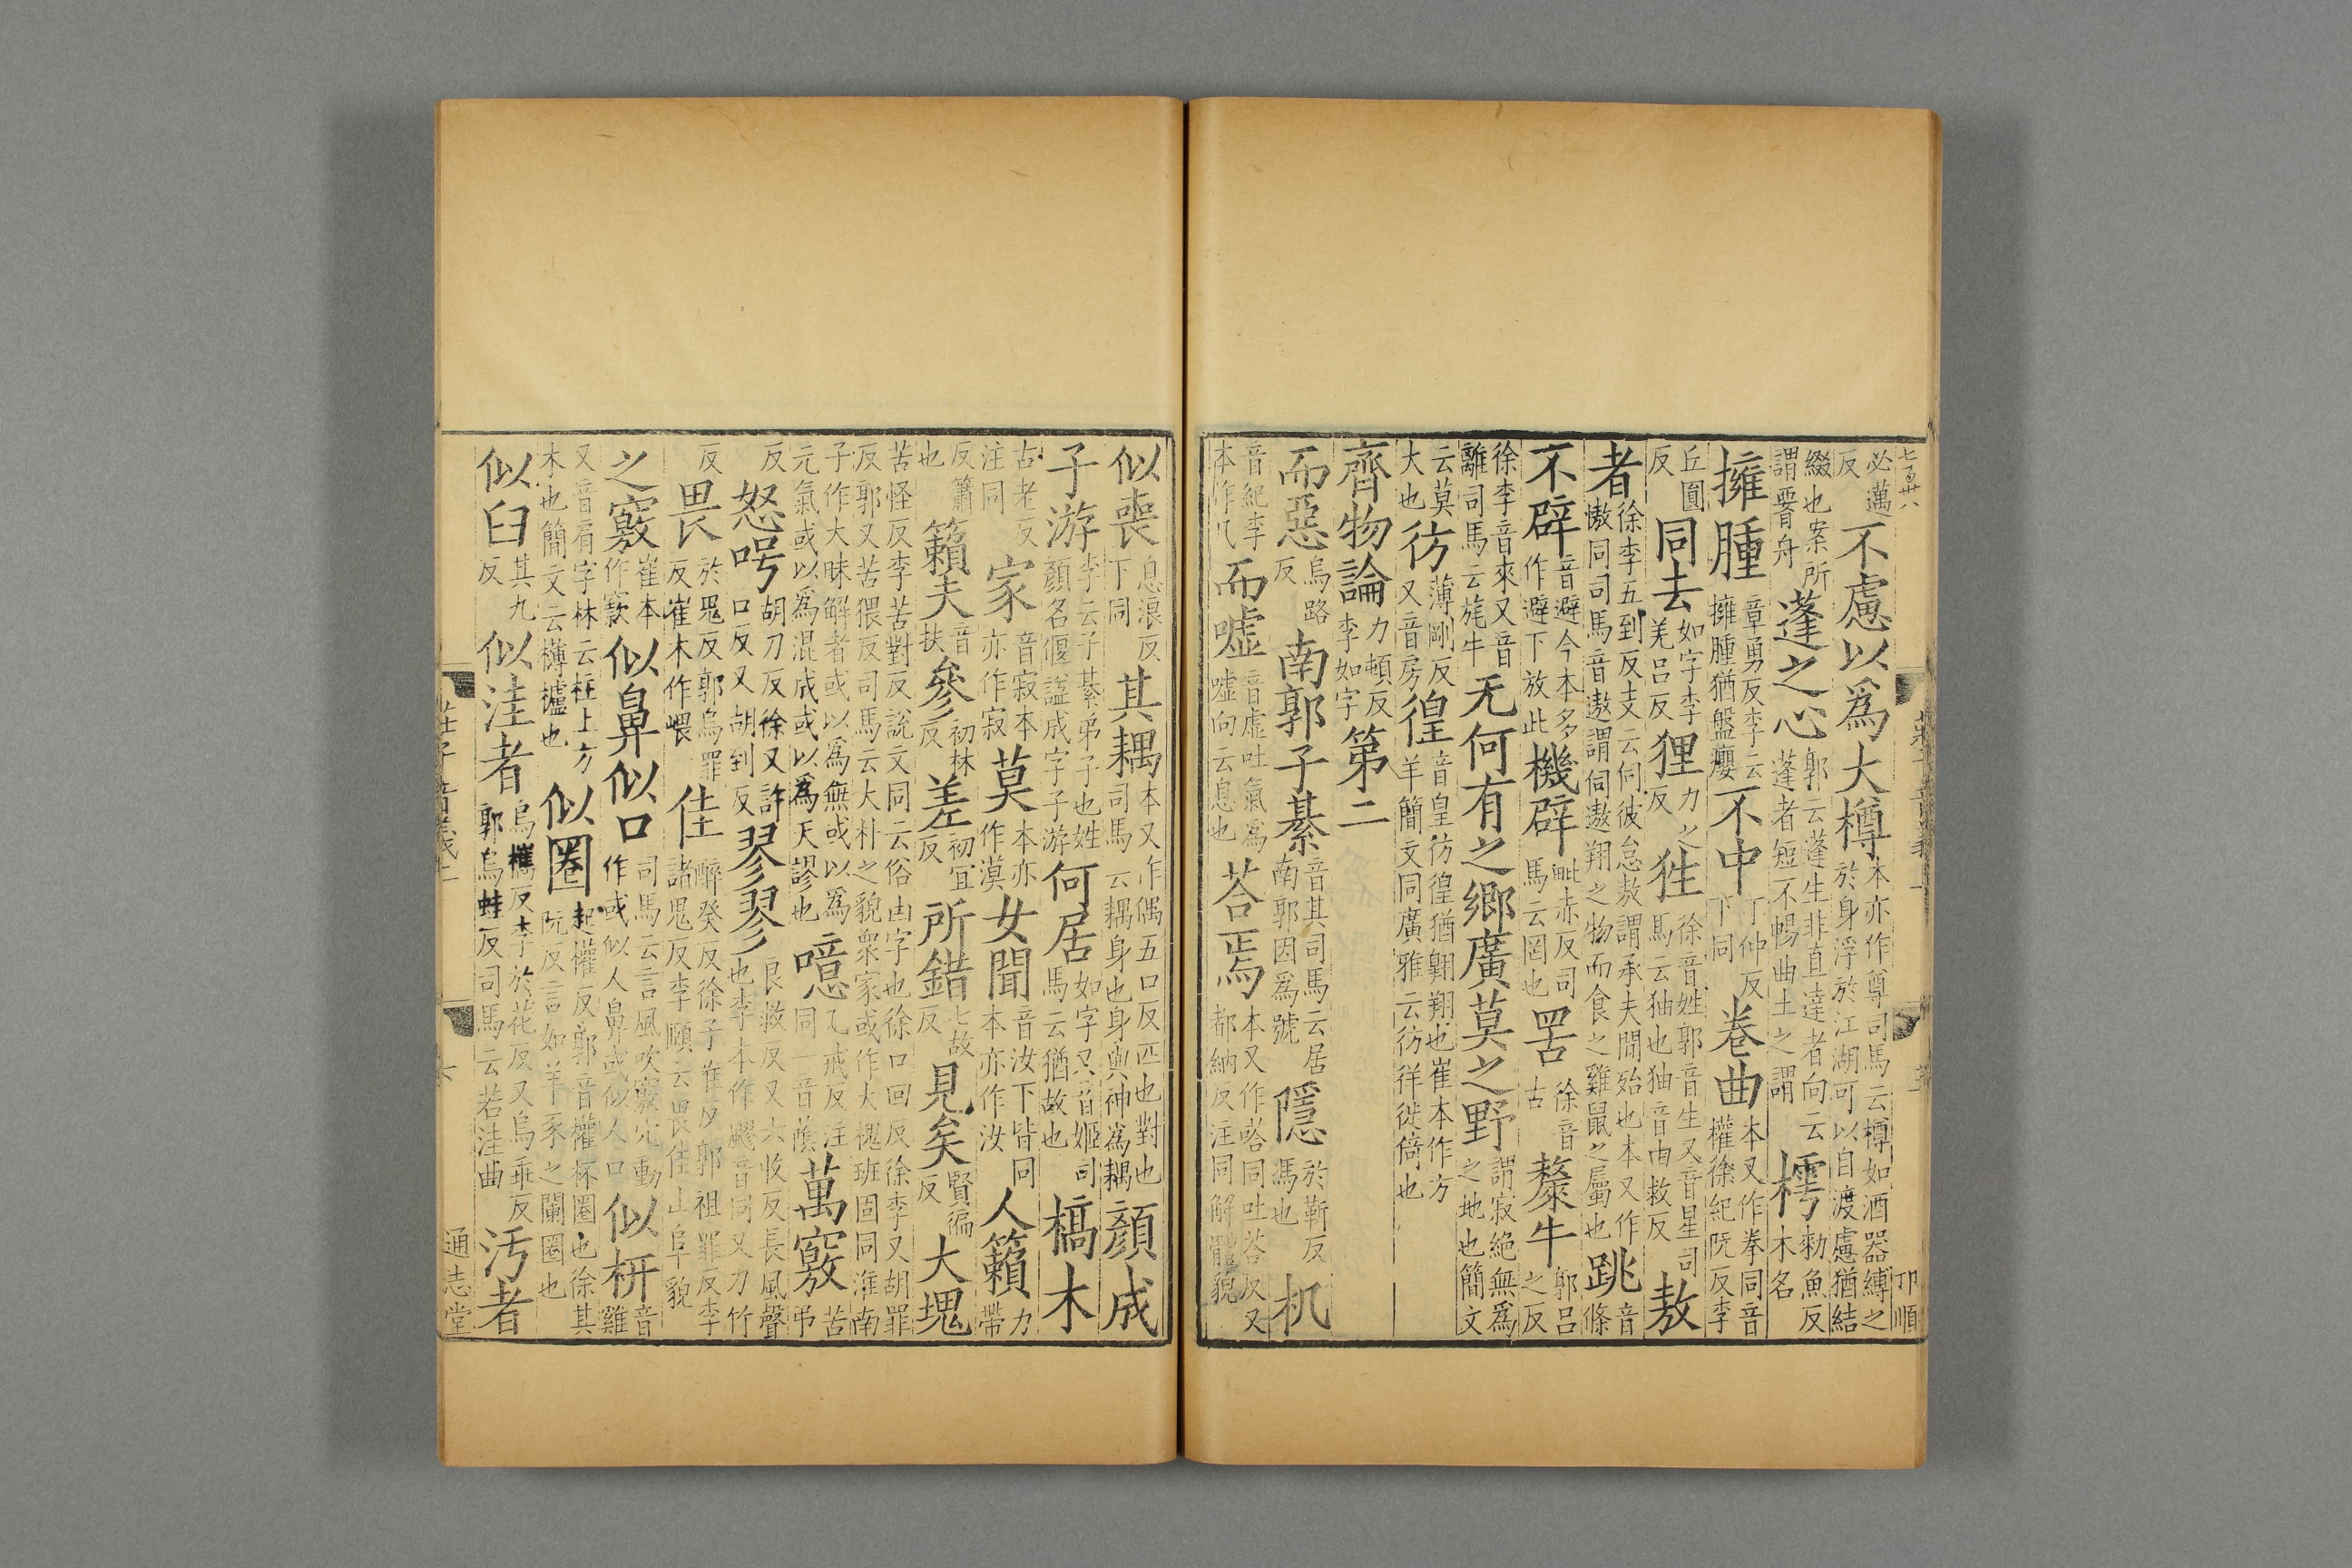 必邁反不慮以爲大樽本亦作尊司馬云樽如酒器縛之於身浮於江湖可以自渡慮猶結
綴也案所謂要舟蓬之心郭云蓬生非直達者向云蓬者短不暢曲士之謂樗勑魚反木名
擁腫章勇反李云擁腫猶盤癭不中丁仲反下同卷曲本又作拳同音權徐紀阮反李
丘圓反同去如字李羌呂反狸力之反狌徐音姓郭音生又音星司馬云狖也狖音由救反敖
者徐李五到反支云伺彼怠敖謂承夫閒殆也本又作傲同司馬音遨謂伺遨翔之物而食之雞鼠之屬也跳音條
不辟音避今本多作避下放此機辟毗赤反司馬云罔也罟徐音古斄牛郭呂之反
徐李音來又音離司馬云旄牛无何有之鄉廣莫之野謂寂絕無爲之地也簡文
云莫大也彷薄剛反又音房徨音皇彷徨猶翱翔也崔本作方羊簡文同廣雅云彷徉徙倚也
齊物論力頓反李如字第二
而惡烏路反南郭子綦音其司馬云居南郭因爲號隱於靳反馮也机
音紀李本作几而噓音虛吐氣爲噓向云息也荅焉本又作嗒同吐荅反又都納反注同解體貌
似喪息浪反下同其耦本又作偶五口反匹也對也司馬云耦身也身與神爲耦顏成
子游李云子綦弟子也姓顏名偃謚成字子游何居如字又音姬司馬云猶故也槁木
古老反注同家音寂本亦作寂莫本亦作漠女聞音汝下皆同本亦作汝人籟力帶
反簫也籟夫音扶參初林反差初宜反所錯七故反見矣賢徧反大塊
苦怪反李苦對反說文同云俗凷字也徐口回反徐李又胡罪反郭又苦猥反司馬云大朴之貌衆家或作大槐班固同淮南
子作大昧解者或以爲無或以爲元氣或以爲混成或以爲天謬也噫乙戒反注同一音蔭萬竅苦弔
反怒呺胡刀反徐又許口反又胡到反翏翏良救反又六收反長風聲也李本作飂音同又力竹
反畏於鬼反郭烏罪反崔本作喂佳醉癸反徐子唯反郭祖罪反李諸鬼反李頤云畏佳山阜貌
之竅崔本作窾似鼻似口司馬云言風吹竅穴動作或似人鼻或似人口似枅音雞
又音肩字林云柱上方木也簡文云欂櫨也似圈起權反郭音權杯圈也徐其阮反言如羊豕之闌圈也
似臼其九反似洼者烏攜反李於花反又烏乖反郭烏蛙反司馬云若洼曲污者
通志堂